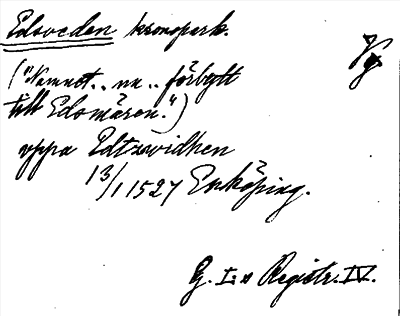 Edsveden kronopark.
Vg
("Namnet.. nu.. förbytt
till Edsmären.")
uppa Edtzswidhen
13/1 1527 Enköping.
G. I:s Registr. IV.